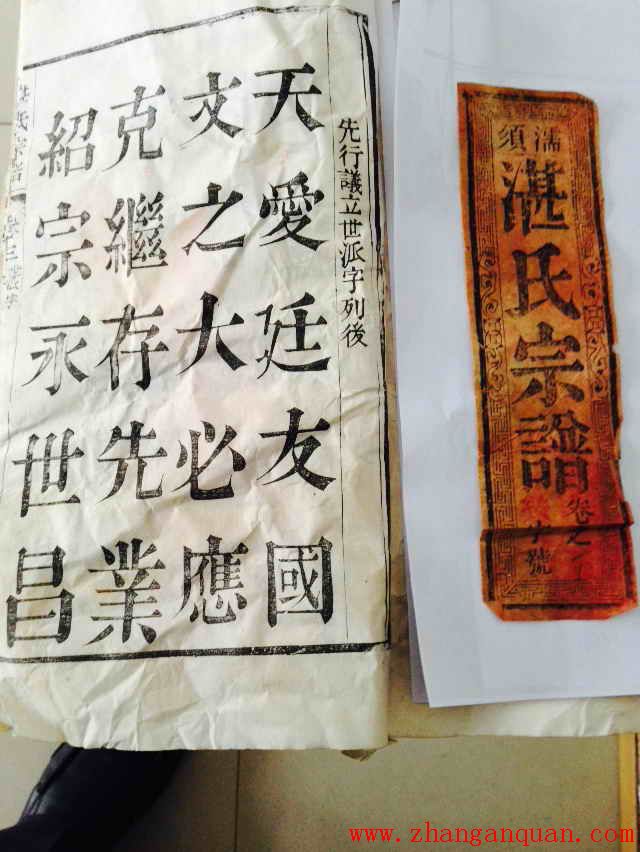 先行議立世派字列後
天愛廷友國
文之大必應
克繼存先業
紹宗永世昌
濡須
湛氏宗譜
卷之
字號
www.zhanganquan.com